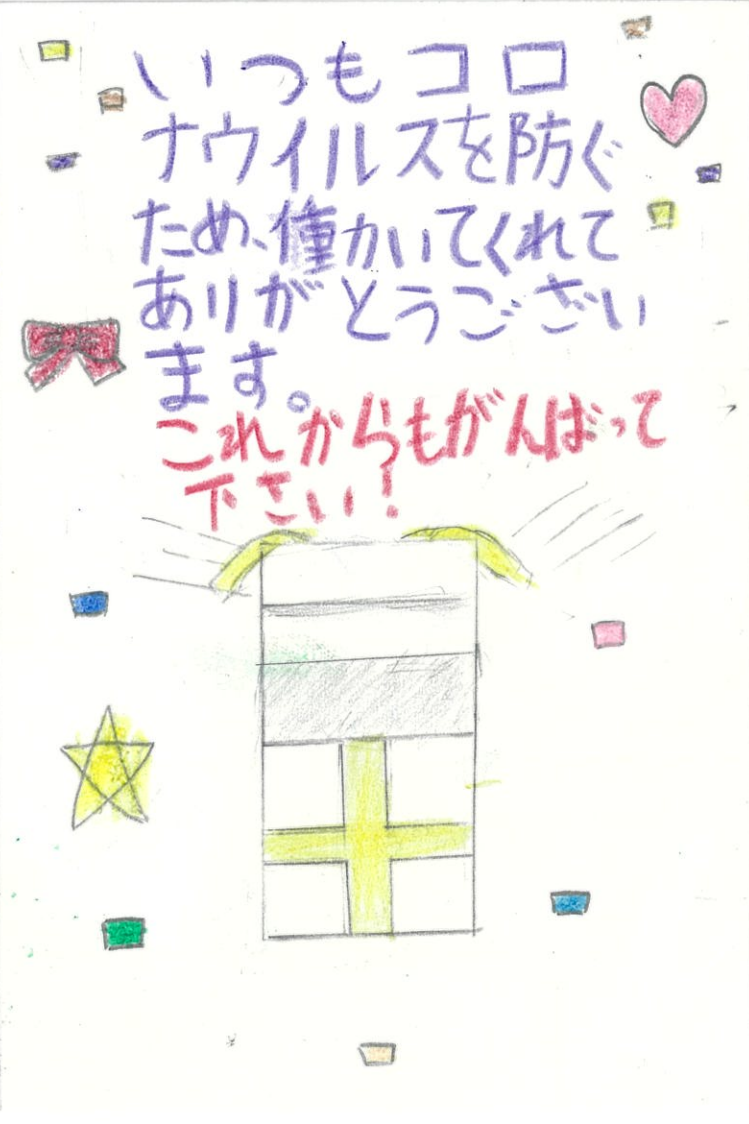 いつもコロ
ナウイルスを防ぐ
ため、働かいてくれて
ありがとうござい
ます。
これからもがんばって
下さい!